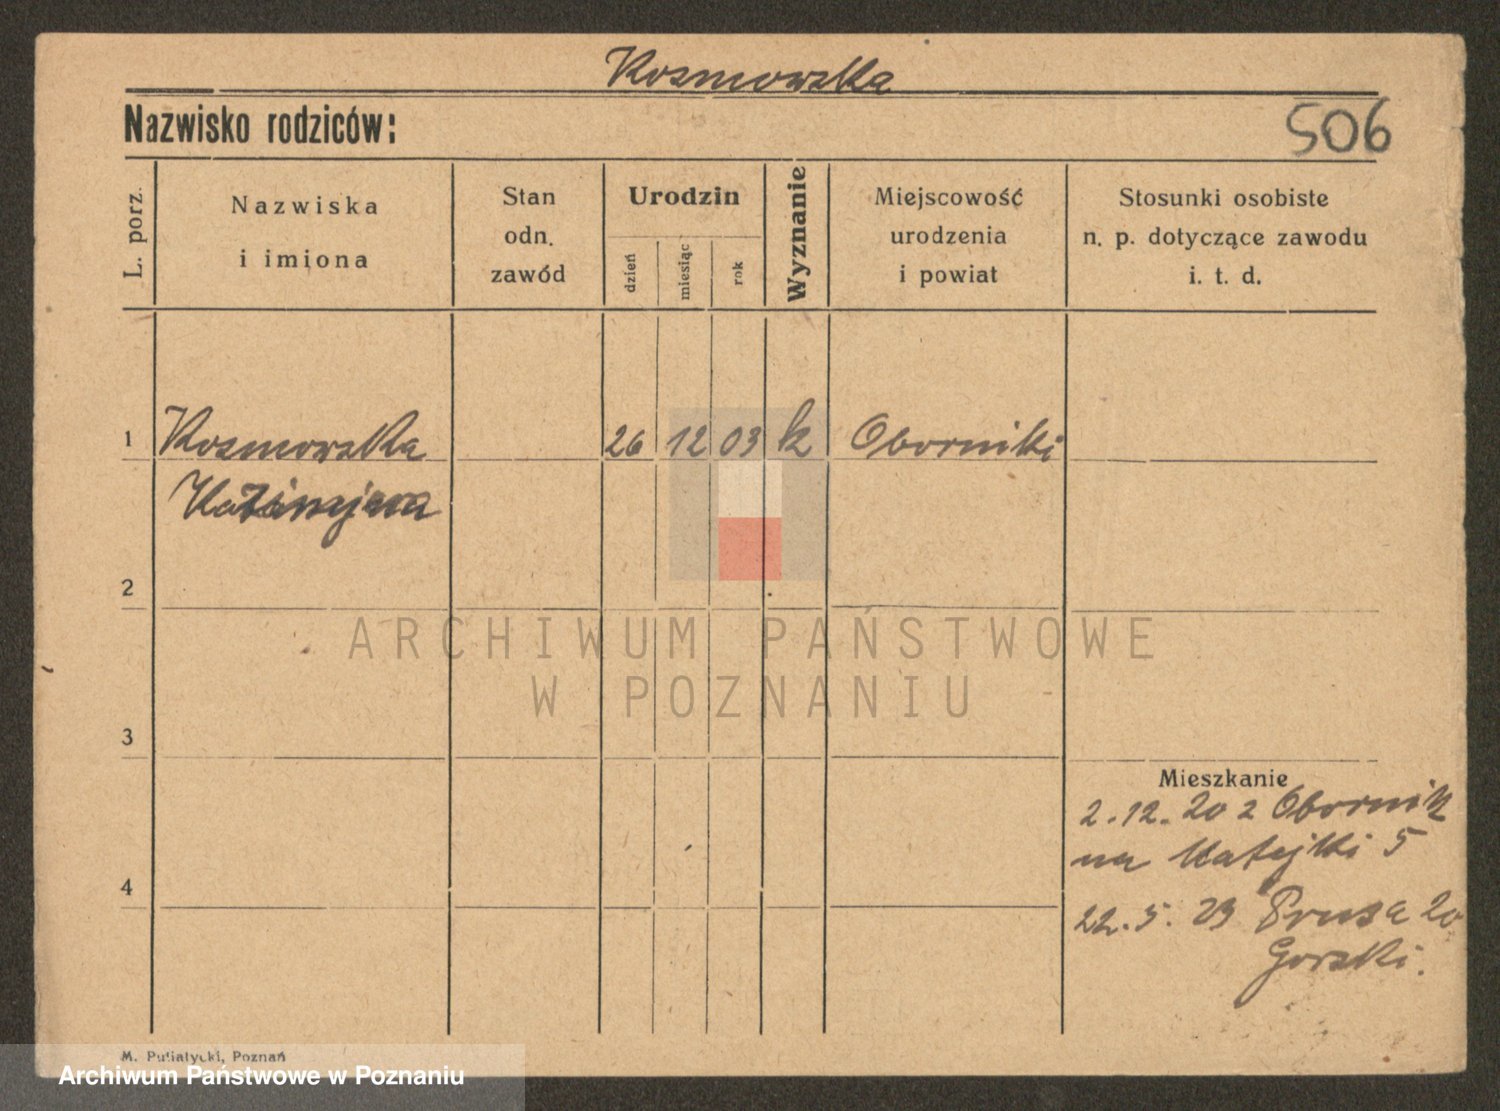 Kosmowska
Nazwisko rodziców:
506
L. porz.
Nazwiska
i imiona
Stan
odn.
zawód
Urodzin
dzień
miesiąc
rok
Wyznanie
Miejscowość
urodzenia
i powiat
Stosunki osobiste
n. p. dotyczące zawodu
i. t. d.
1 Kosmowska 26 12 03 k Oborniki
Kazimjera
2
ARCHIWUM PAŃSTWOWE
W POZNANIU
3
Mieszkanie
2.12.20 z Obornik
na Matejki 5
4
22.5.23 Prusa 20
Gorski.
M. Putiatycki, Poznań
Archiwum Państwowe w Poznaniu